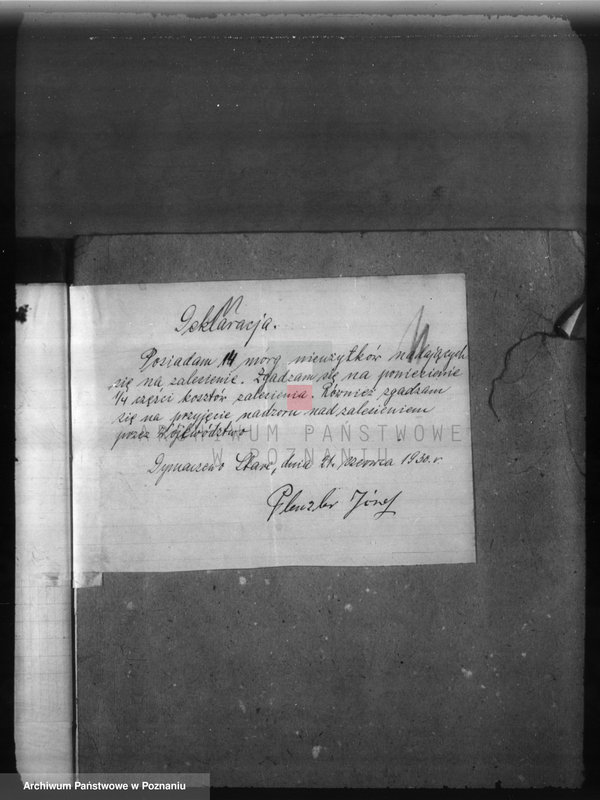 Deklaracja.
Posiadam 14 morg nieużytków nadających
się na zalesienie. Zgadzam się na poniesienie
1/4 części kosztów zalesienia. Również zgadzam
się na przyjęcie nadzoru nad zalesieniem
przez Województwo
ARCHIWUM PAŃSTWOWE
W POZNANIU
Dymaczewo Stare, dnia 21. czerwca 1930. r.
Plenzler Józef
Archiwum Państwowe w Poznaniu